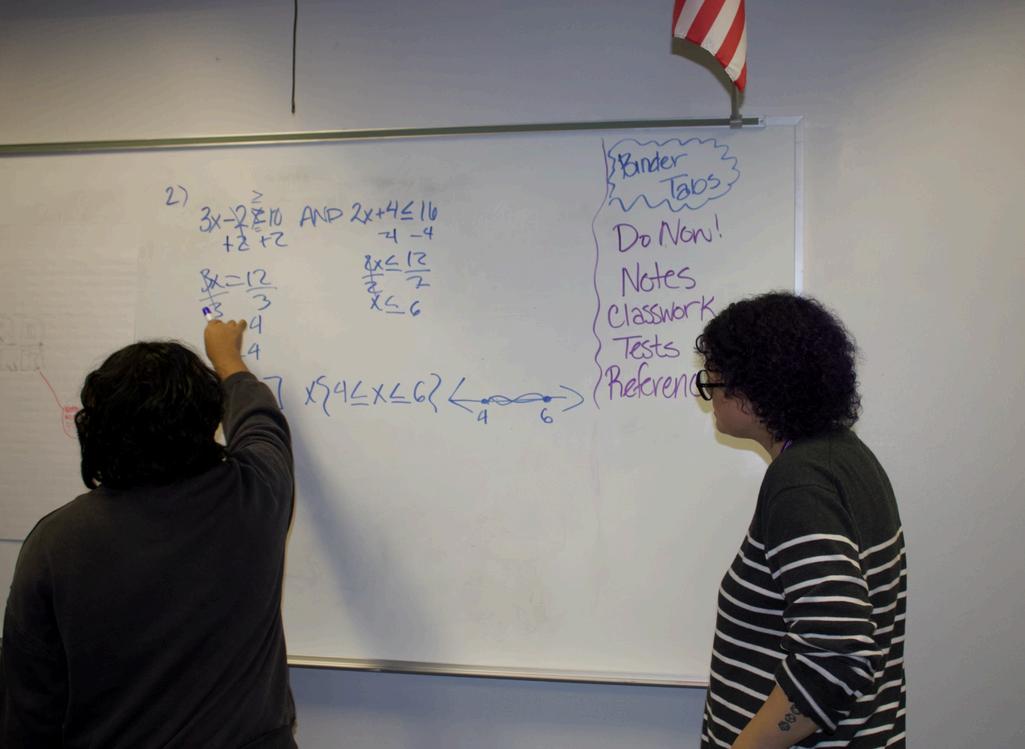 2)
≥
3x-2≥10 AND 2x+4≤16
+2 +2 -4 -4
3x=12 2x≤12
3 3 2 2
4 x≤6
4
] x{4≤x≤6}
4 6
Binder
Tabs
Do Now!
Notes
Classwork
Tests